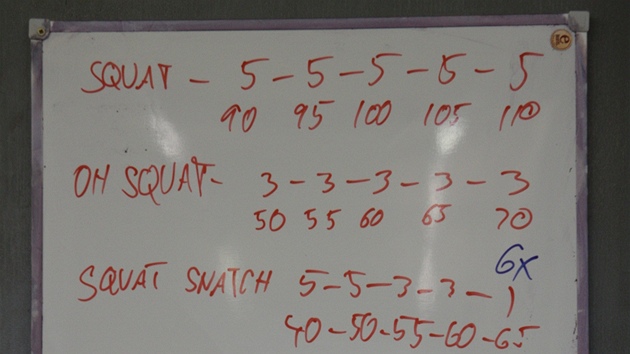 SQUAT - 5 - 5 - 5 - 5 - 5
90 95 100 105 110
OH SQUAT- 3 - 3 - 3 - 3 - 3
50 55 60 65 70
6x
SQUAT SNATCH 5-5-3-3-1
40-50-55-60-65